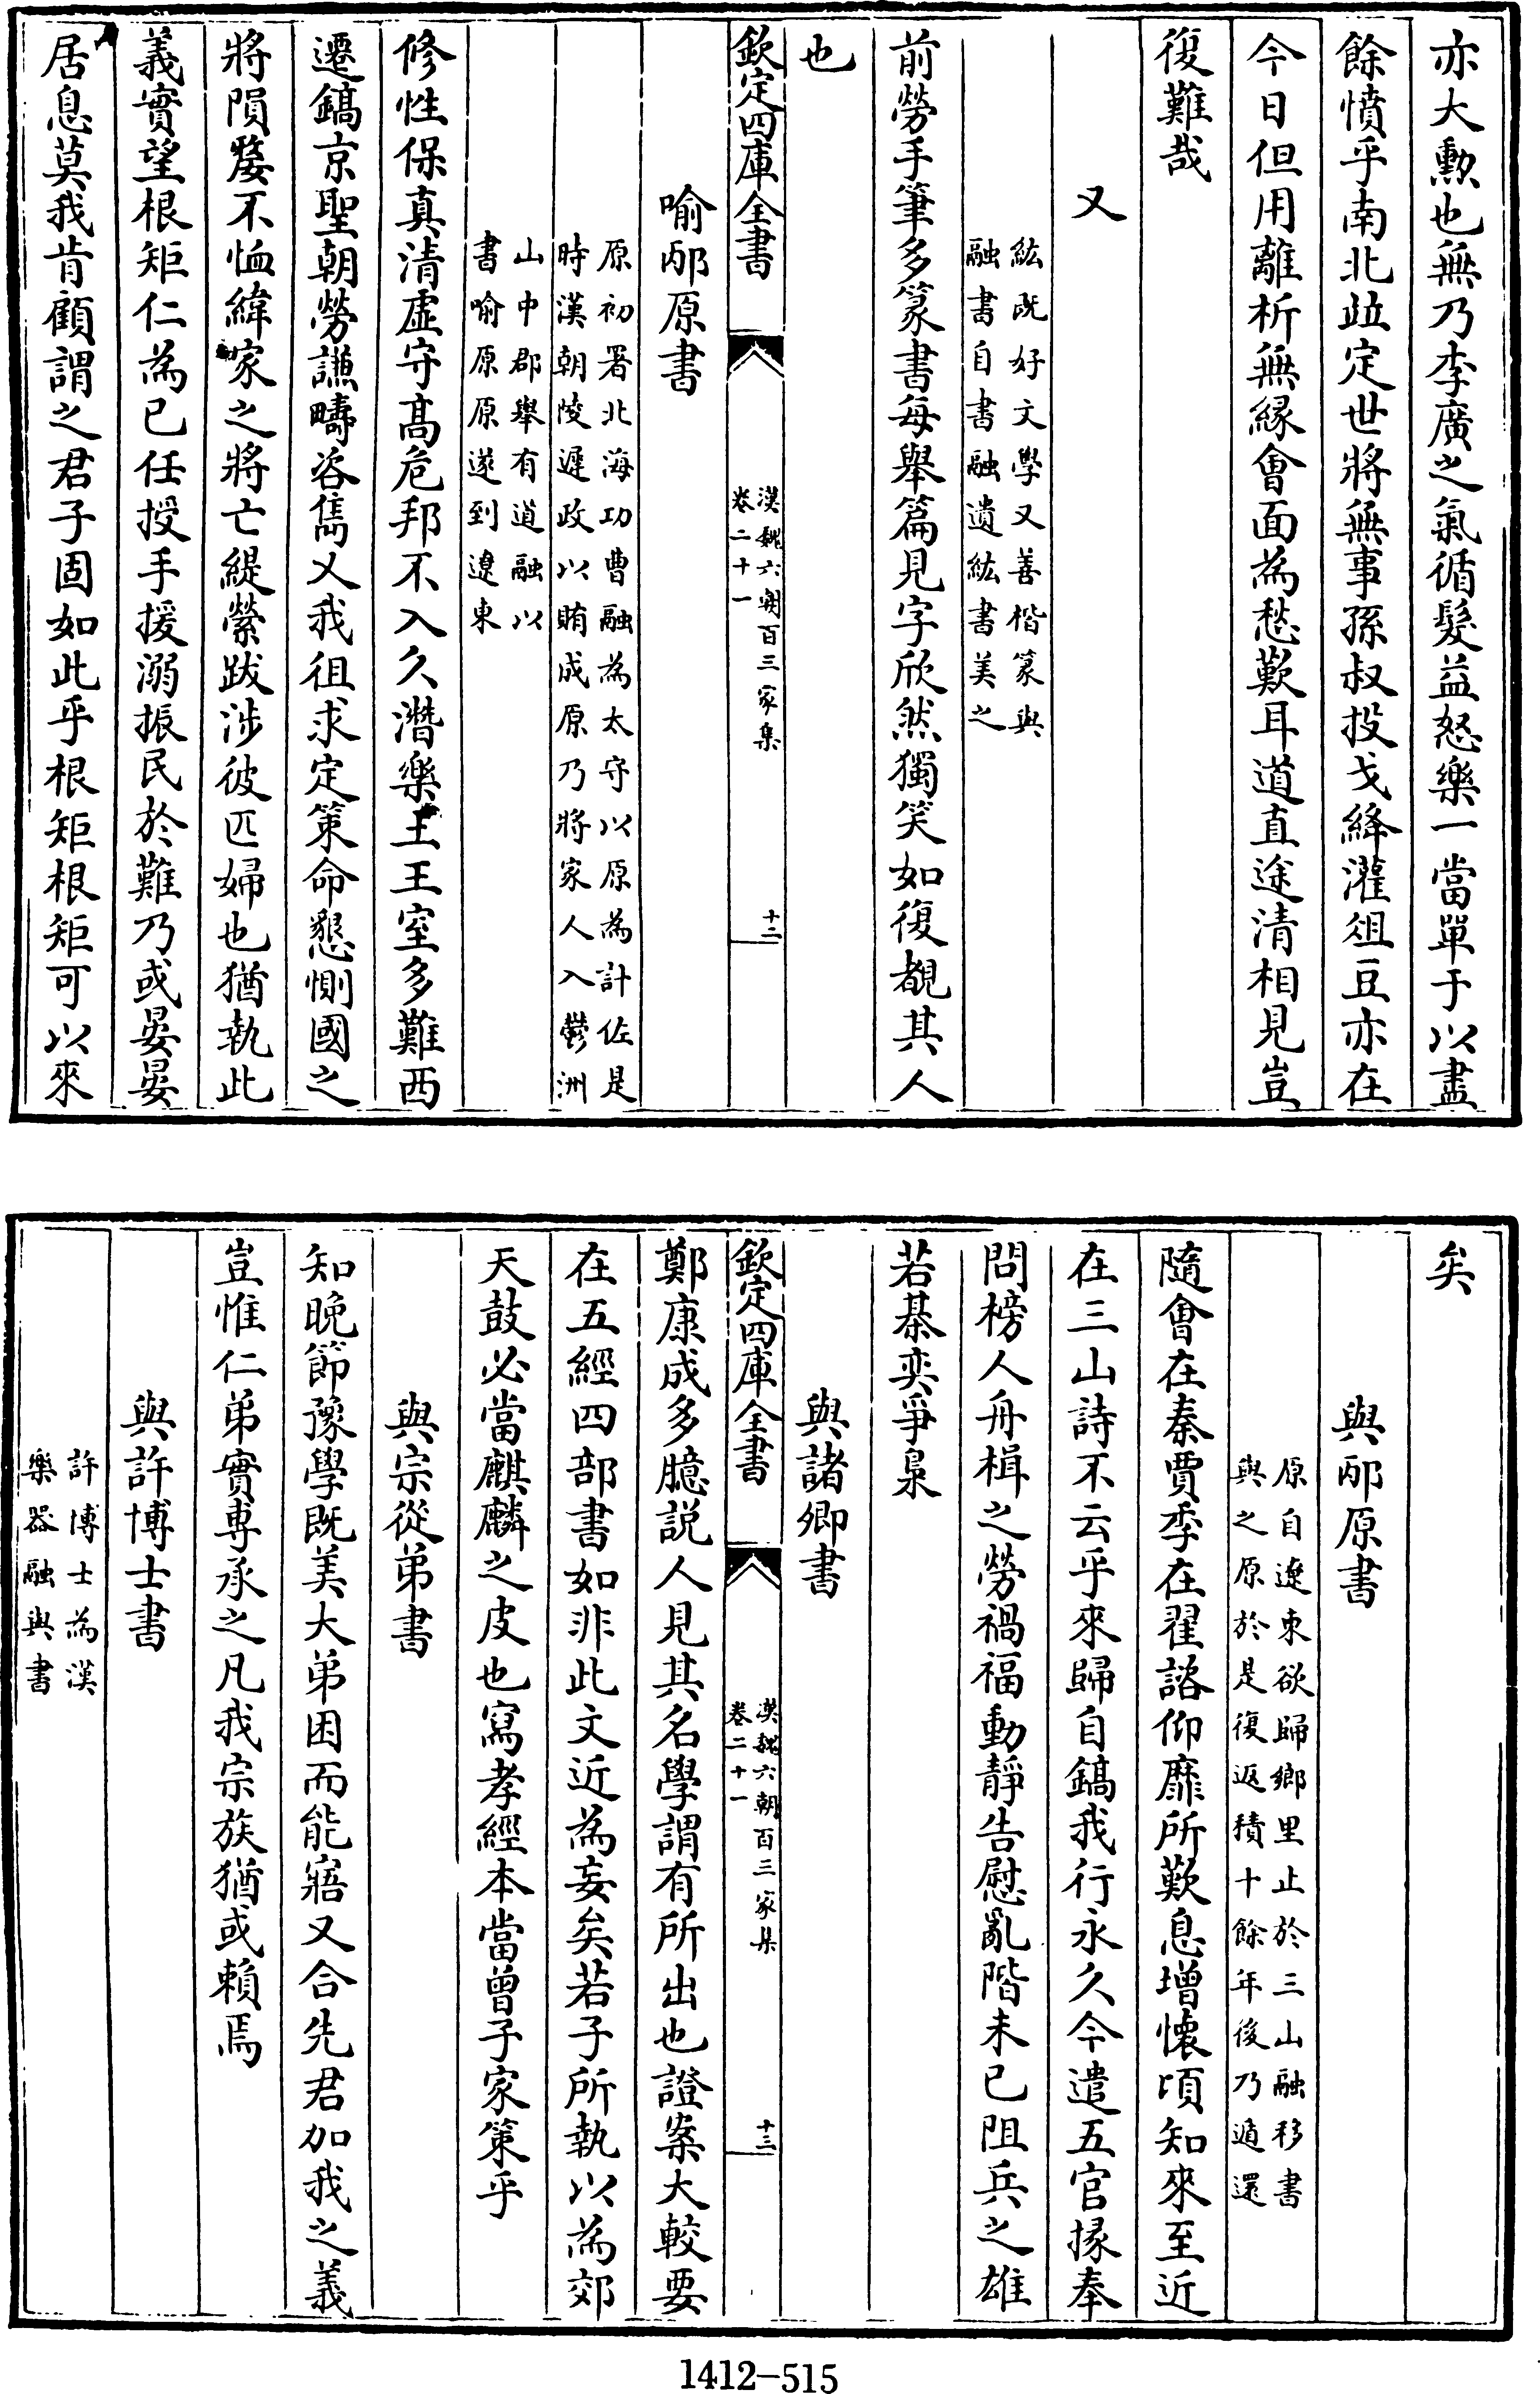 亦大勲也無乃李廣之氣循髮益怒樂一當單于以盡
餘憤乎南北竝定世將無事孫叔投戈絳灌俎豆亦在
今日但用離析無縁會面為愁歎耳道直途清相見豈
復難哉
又
紘既好文學又善楷篆與
融書自書融遺紘書美之
前勞手筆多篆書每舉篇見字欣然獨笑如復覩其人
也
欽定四庫全書
漢魏六朝百三家集
卷二十一
十二
喻邴原書
原初署北海功曹融為太守以原為計佐是
時漢朝陵遲政以賄成原乃將家人入鬱洲
山中郡舉有道融以
書喻原原遂到遼東
修性保真清虚守髙危邦不入久潛樂土王室多難西
遷鎬京聖朝勞謙疇咨儁乂我徂求定策命懇惻國之
將隕嫠不恤緯家之將亡緹縈跋涉彼匹婦也猶執此
義實望根矩仁為已任授手援溺振民於難乃或晏晏
居息莫我肯顧謂之君子固如此乎根矩根矩可以來
矣
與邴原書
原自遼東欲歸鄉里止於三山融移書
與之原於是復返積十餘年後乃遁還
隨會在秦賈季在翟諮仰靡所歎息増懐頃知來至近
在三山詩不云乎來歸自鎬我行永久今遣五官掾奉
問榜人舟楫之勞禍福動靜告慰亂階未已阻兵之雄
若棊奕爭梟
與諸卿書
欽定四庫全書
漢魏六朝百三家集
卷二十一
十三
鄭康成多臆説人見其名學謂有所出也證案大較要
在五經四部書如非此文近為妄矣若子所執以為郊
天鼓必當麒麟之皮也寫孝經本當曾子家策乎
與宗從弟書
知晚節豫學既美大弟困而能寤又合先君加我之義
豈惟仁弟實專承之凡我宗族猶或賴焉
與許博士書
許博士為漢
樂器融與書
1412-515